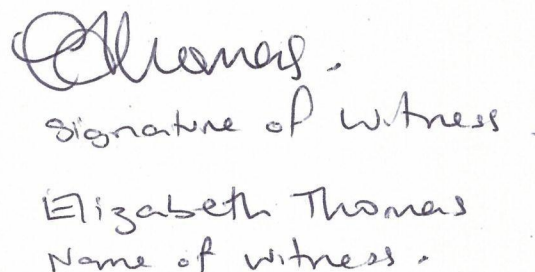 EThomas.
Signature of Witness.
Elizabeth Thomas
Name of witness.